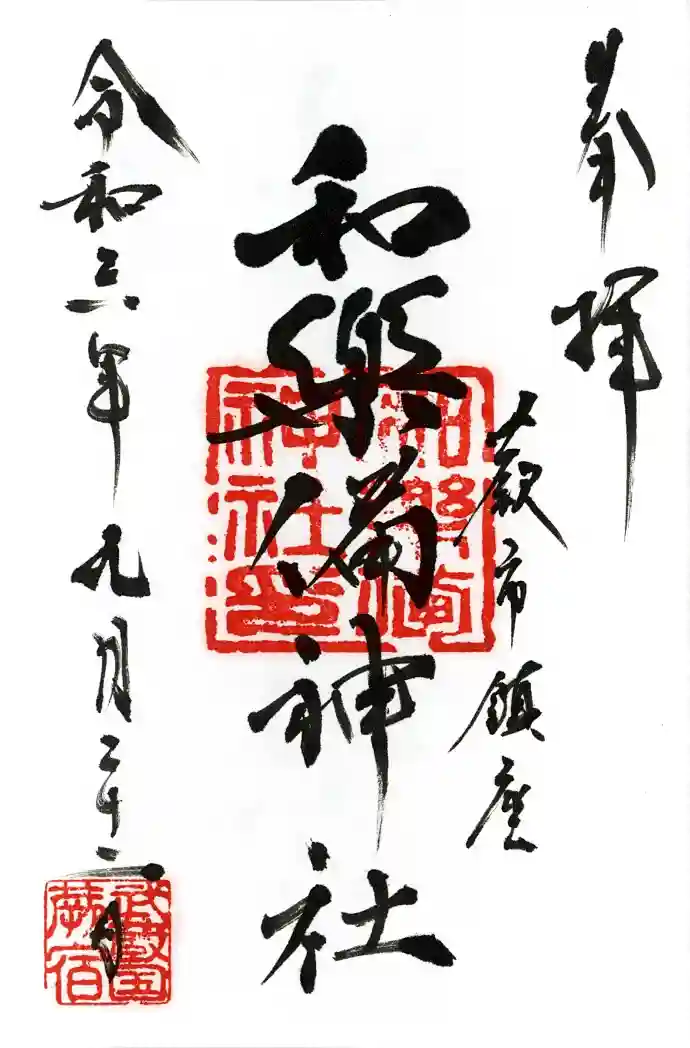 奉拝
萩市鎮座
和樂備神社
和樂備神社印
令和三年九月二十二日
武蔵国
蕨宿